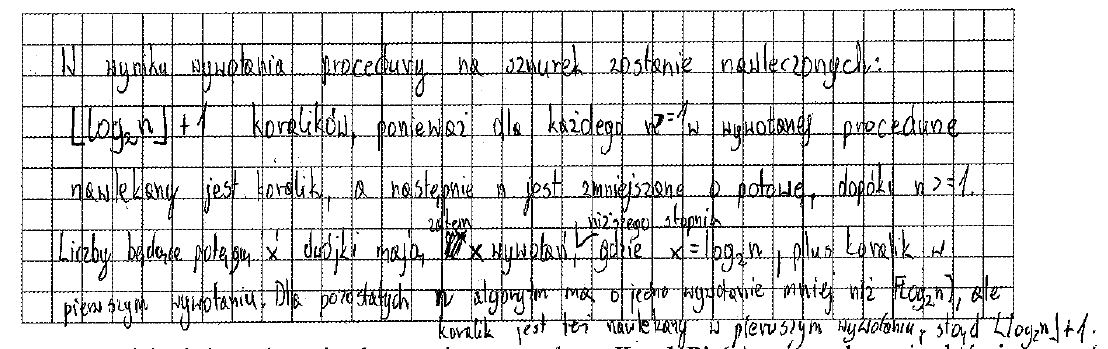 W wyniku wywołania procedury na sznurek zostanie nawleczonych:
⌊log₂n⌋+1 koralików, ponieważ dla każdego n>=1 w wywołanej procedurze
nawlekany jest koralik, a następnie n jest zmniejszane o połowę, dopóki n>=1.
zatem niższego stopnia
Liczby będące potęgą x dwójki mają x wywołań, gdzie x=log₂n, plus koralik w
pierwszym wywołaniu. Dla pozostałych n algorytm ma o jedno wywołanie mniej niż ⌈log₂n⌉, ale
koralik jest też nawlekany w pierwszym wywołaniu, stąd ⌊log₂n⌋+1.